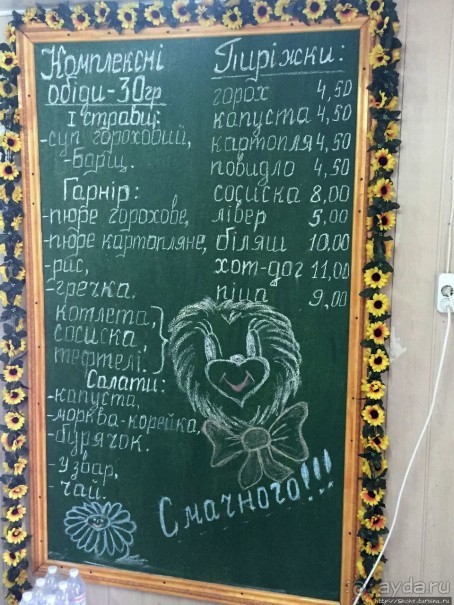 Комплексні
обіди-30гр
І страви:
-суп гороховий,
-борщ.
Гарнір:
-пюре горохове,
-пюре картопляне,
-рис,
-гречка.
котлета,
сосиска,
тефтелі.
Салати:
-капуста,
-морква-корейка,
-бурячок.
-Узвар,
-Чай.
Пиріжки:
горох 4,50
капуста 4,50
картопля 4,50
повидло 4,50
сосиска 8,00
лівер 5,00
біляш 10.00
хот-дог 11,00
піца 9,00
Смачного!!!
ayda.ru